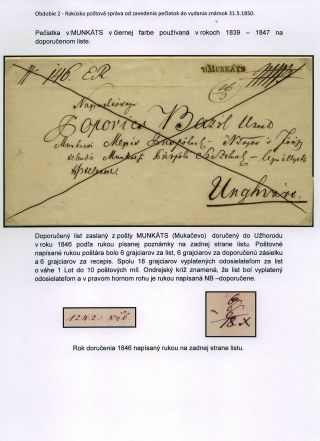 Obdobie 2 - Rakúska poštová správa od zavedenia pečiatok do vydania známok 31.5.1850.
Pečiatka v:MUNKÁTS v čiernej farbe používaná v rokoch 1839 – 1847 na
doporučenom liste.
v:MUNKÁTS
Popovics Bazil
Munkács
Unghvár
Doporučený list zaslaný z pošty MUNKÁTS (Mukačevo) doručený do Užhorodu
v roku 1846 podľa rukou písanej poznámky na zadnej strane listu. Poštovné
napísané rukou poštára bolo 6 grajciarov za list, 6 grajciarov za doporučenú zásielku
a 6 grajciarov za recepis. Spolu 18 grajciarov vyplatených odosielateľom za list
o váhe 1 Lot do 10 poštových míl. Ondrejský kríž znamená, že list bol vyplatený
odosielateľom a v pravom hornom rohu je rukou napísaná NB –doporučene.
6
6
18.x
Rok doručenia 1846 napísaný rukou na zadnej strane listu.